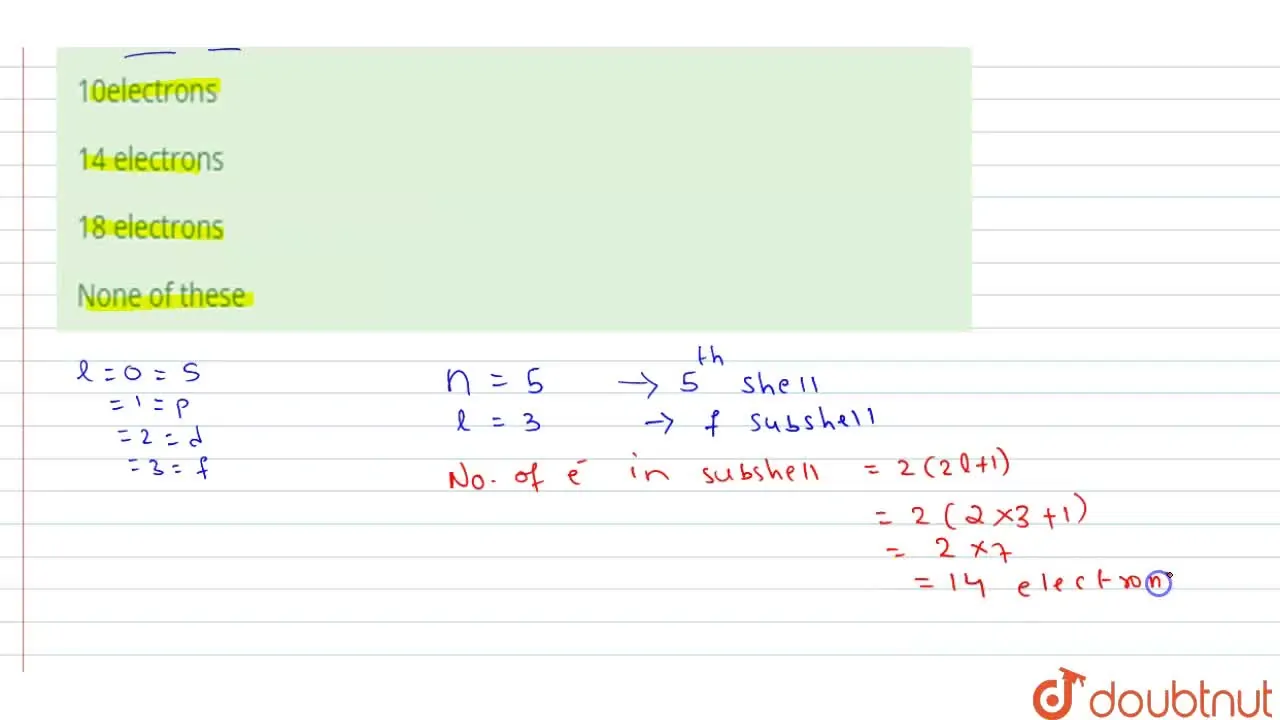 10electrons
14 electrons
18 electrons
None of these
l = 0 = s
= 1 = p
= 2 = d
= 3 = f
n = 5 → 5th shell
l = 3 → f subshell
No. of e- in subshell = 2(2l+1)
= 2(2×3+1)
= 2×7
= 14 electron
doubtnut